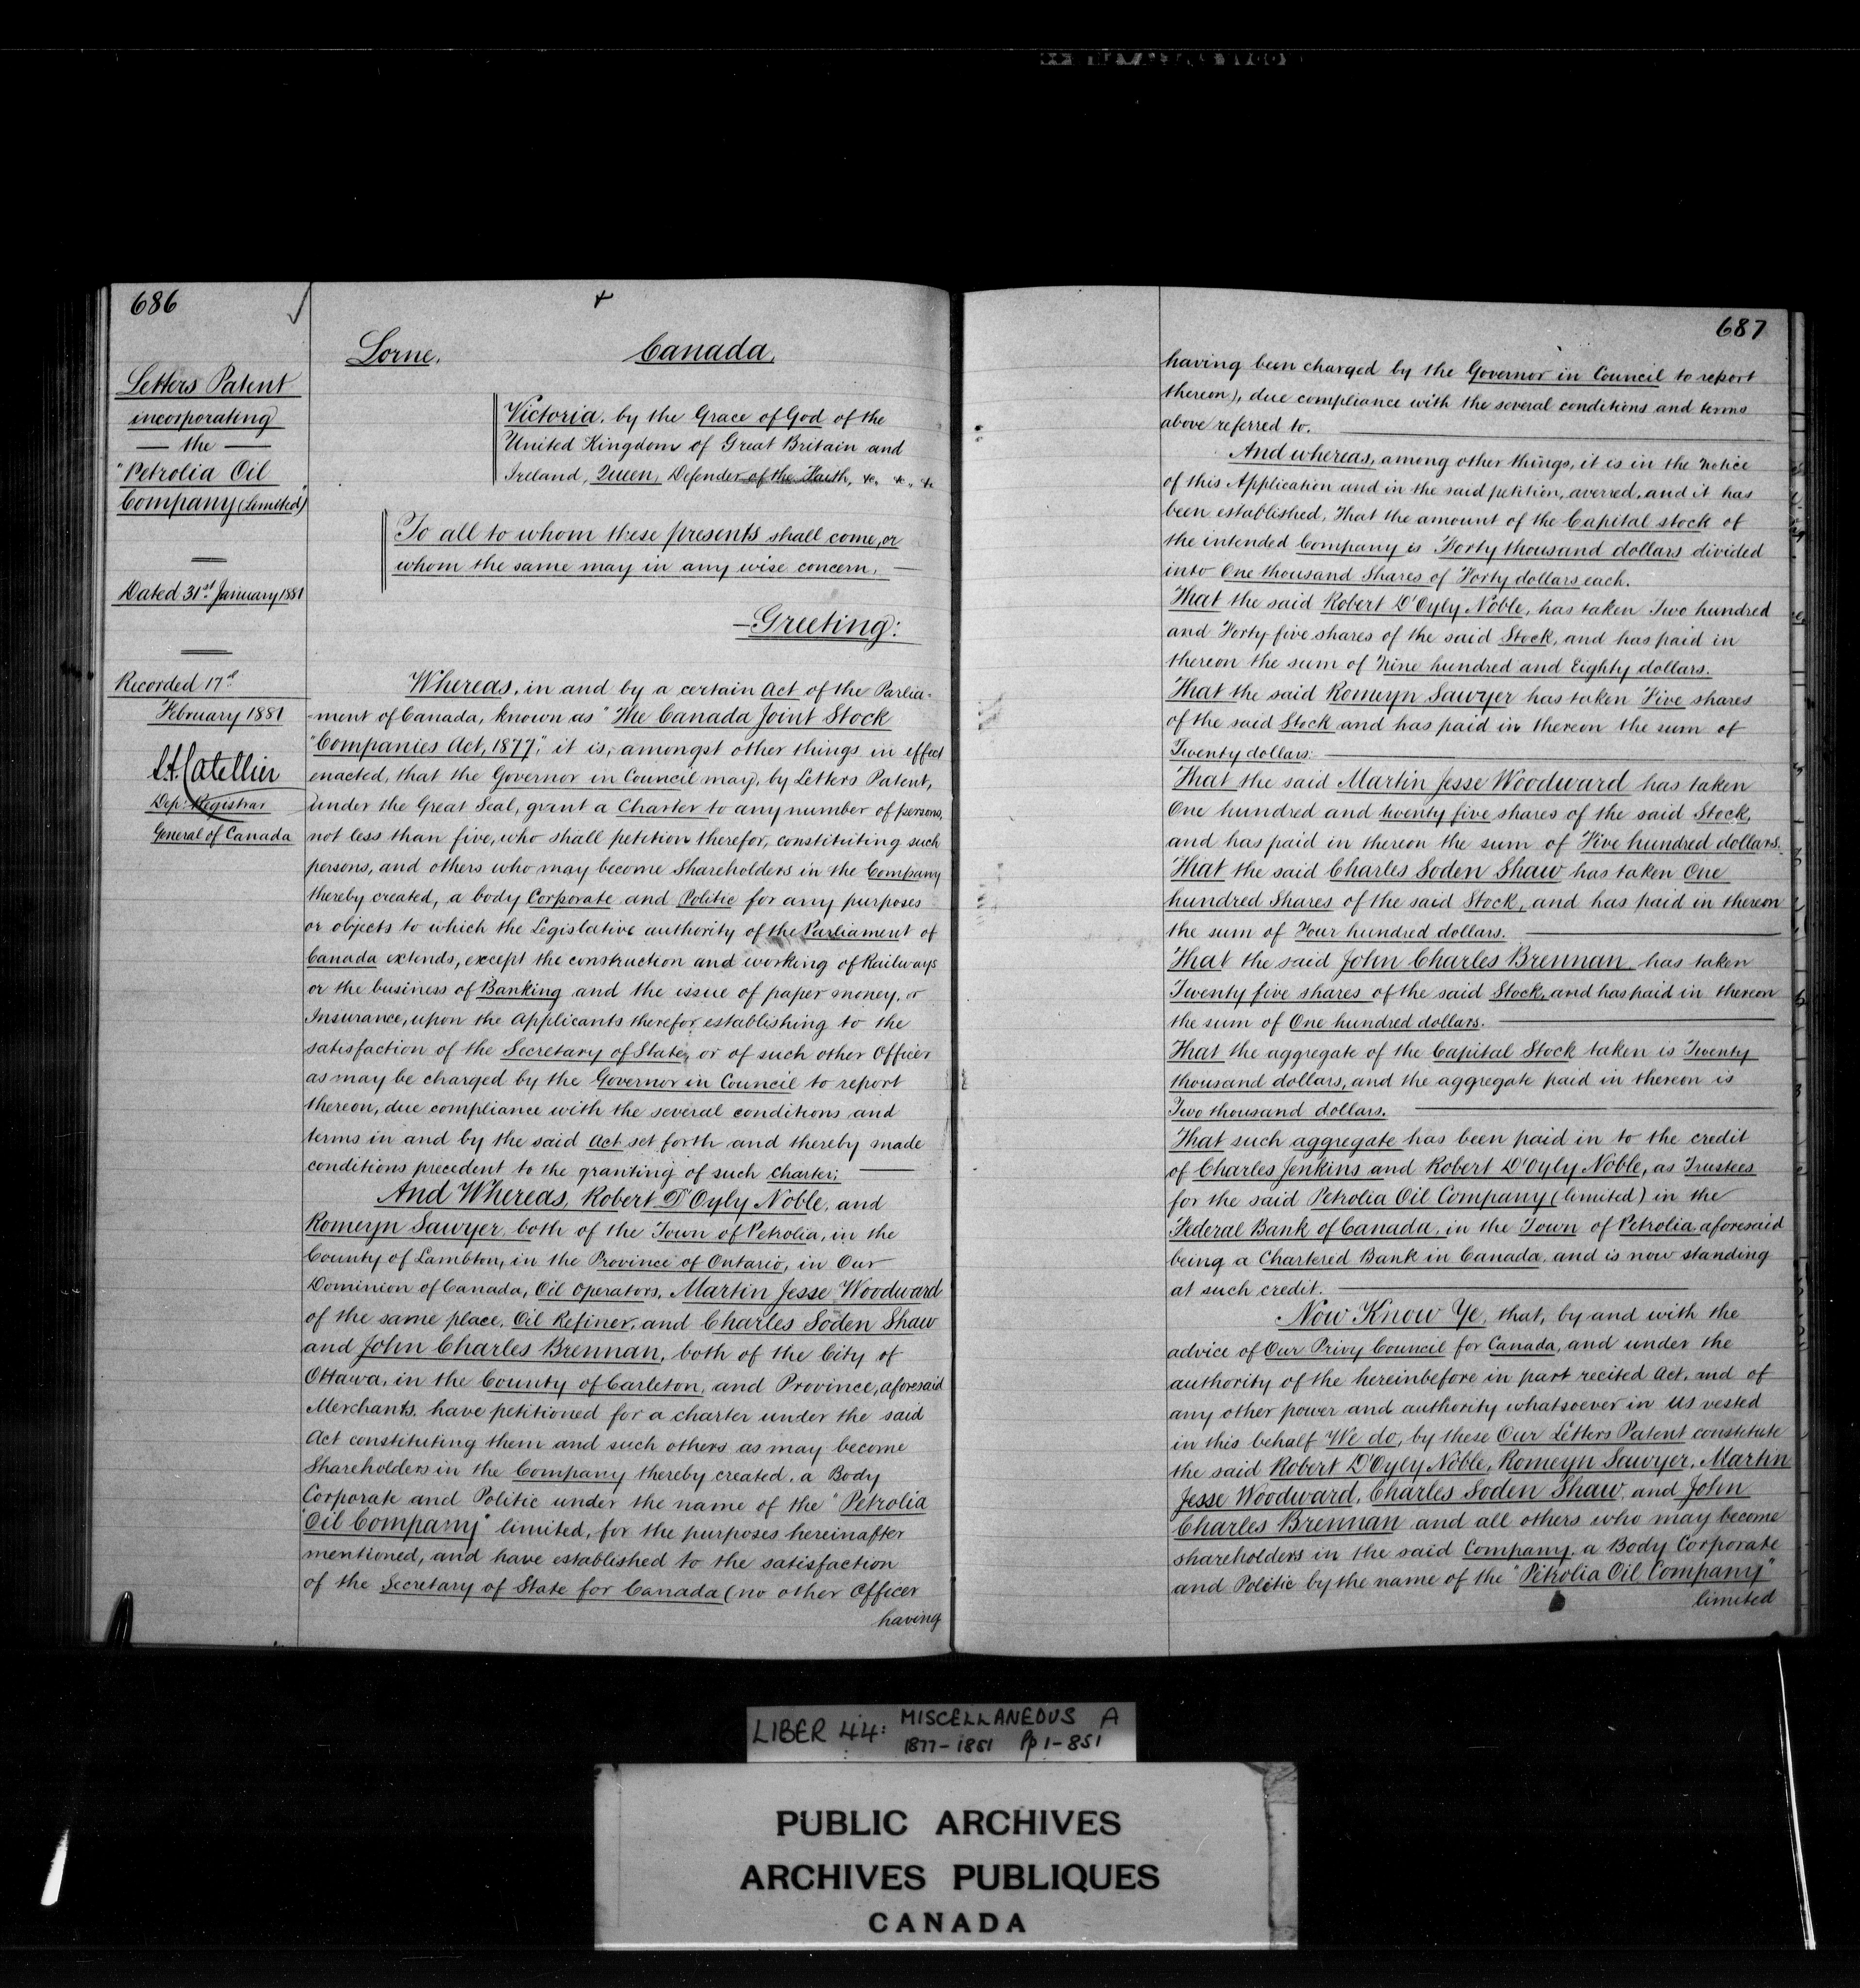 686
Letters Patent
incorporating
— the —
"Petrolia Oil
Company (Limited)"
Dated 31st January 1881
Recorded 17th
February 1881
L. A. Catellier
Dep: Registrar
General of Canada
Lorne, Canada,
Victoria, by the Grace of God of the
United Kingdom of Great Britain and
Ireland, Queen, Defender of the Faith, &c, &c, &c
To all to whom these presents shall come, or
whom the same may in any wise concern, —
— Greeting:
Whereas, in and by a certain Act of the Parlia-
-ment of Canada, known as "The Canada Joint Stock
"Companies Act, 1877," it is, amongst other things in effect
enacted, that the Governor in Council may, by Letters Patent,
under the Great Seal, grant a Charter to any number of persons,
not less than five, who shall petition therefor, constituting such
persons, and others who may become Shareholders in the Company
thereby created, a body Corporate and Politic for any purposes
or objects to which the Legislative authority of the Parliament of
Canada extends, except the construction and working of Railways
or the business of Banking and the issue of paper money, or
Insurance, upon the Applicants therefor establishing to the
satisfaction of the Secretary of State, or of such other Officer
as may be charged by the Governor in Council to report
thereon, due compliance with the several conditions and
terms in and by the said Act set forth and thereby made
conditions precedent to the granting of such Charter;
And Whereas, Robert D'Oyly Noble, and
Romeyn Sawyer, both of the Town of Petrolia, in the
County of Lambton, in the Province of Ontario, in Our
Dominion of Canada, Oil Operators, Martin Jesse Woodward
of the same place, Oil Refiner, and Charles Soden Shaw
and John Charles Brennan, both of the City of
Ottawa, in the County of Carleton, and Province, aforesaid
Merchants, have petitioned for a charter under the said
Act constituting them and such others as may become
Shareholders in the Company thereby created, a Body
Corporate and Politic under the name of the "Petrolia
"Oil Company" limited, for the purposes hereinafter
mentioned, and have established to the satisfaction
of the Secretary of State for Canada (no other Officer
having
687
having been charged by the Governor in Council to report
thereon), due compliance with the several conditions and terms
above referred to.
And whereas, among other things, it is in the Notice
of this Application and in the said petition, averred, and it has
been established, That the amount of the Capital stock of
the intended Company is Forty thousand dollars divided
into One thousand Shares of Forty dollars each.
That the said Robert D'Oyly Noble, has taken Two hundred
and Forty five shares of the said Stock, and has paid in
thereon the sum of Nine hundred and Eighty dollars.
That the said Romeyn Sawyer has taken Five shares
of the said Stock and has paid in thereon the sum of
Twenty dollars.
That the said Martin Jesse Woodward has taken
One hundred and twenty five shares of the said Stock,
and has paid in thereon the sum of Five hundred dollars.
That the said Charles Soden Shaw has taken One
hundred Shares of the said Stock, and has paid in thereon
the sum of Four hundred dollars.
That the said John Charles Brennan has taken
Twenty five shares of the said Stock, and has paid in thereon
the sum of One hundred dollars.
That the aggregate of the Capital Stock taken is Twenty
thousand dollars, and the aggregate paid in thereon is
Two thousand dollars.
That such aggregate has been paid in to the credit
of Charles Jenkins and Robert D'Oyly Noble, as Trustees
for the said Petrolia Oil Company (limited) in the
Federal Bank of Canada, in the Town of Petrolia aforesaid
being a Chartered Bank in Canada, and is now standing
at such credit.
Now Know Ye, that, by and with the
advice of Our Privy Council for Canada, and under the
authority of the hereinbefore in part recited Act, and of
any other power and authority whatsoever in Us vested
in this behalf We do, by these Our Letters Patent constitute
the said Robert D'Oyly Noble, Romeyn Sawyer, Martin
Jesse Woodward, Charles Soden Shaw, and John
Charles Brennan and all others who may become
shareholders in the said Company, a Body Corporate
and Politic by the name of the "Petrolia Oil Company"
limited
LIBER 44: MISCELLANEOUS A
1877-1881 Pp 1-851
PUBLIC ARCHIVES
ARCHIVES PUBLIQUES
CANADA